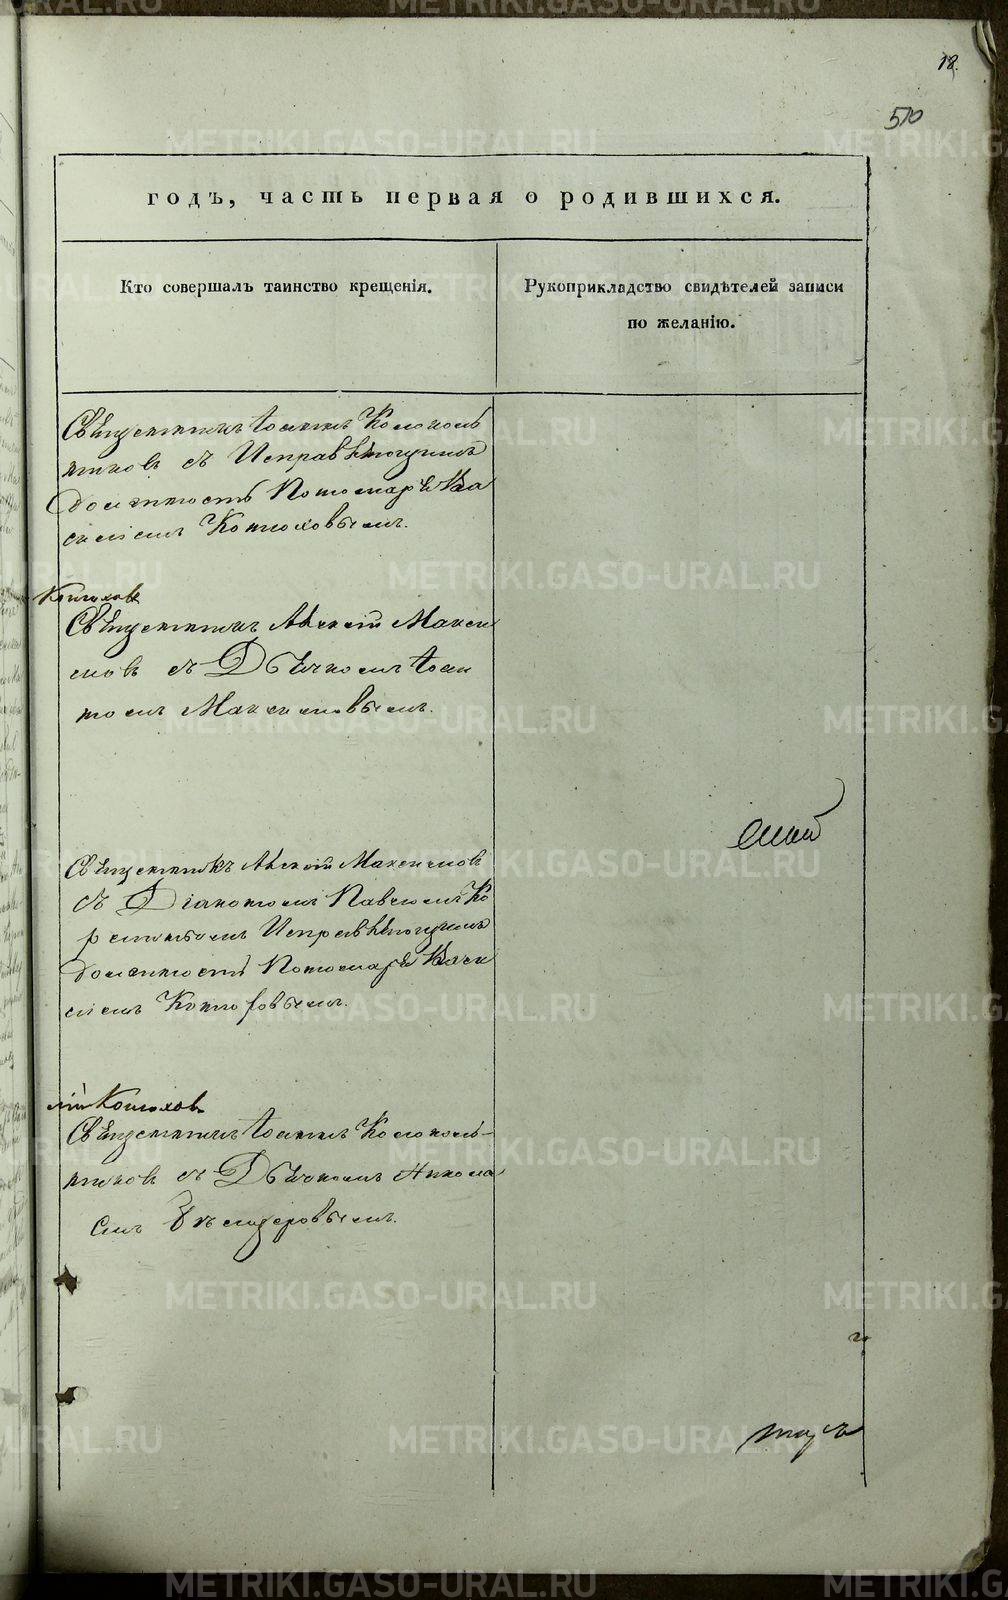 18.
510
годъ, часть первая о родившихся.
Кто совершалъ таинство крещенія.
Рукоприкладство свидѣтелей записи
по желанію.
Священникъ Іоаннъ Колоколь
никовъ съ Исправляющимъ
должность Пономаря Ва
силіемъ Конюховымъ.
Конюховъ
Священникъ Алексій Макси
мовъ съ Дьячкомъ Іоан
номъ Максимовымъ.
Священникъ Алексій Максимовъ
съ Діакономъ Павломъ Ко
Исправляющимъ
должность Пономаря Васи
ліемъ Конюховымъ.
лій Конюховъ
Священникъ Іоаннъ Колоколь-
никовъ съ Дьячкомъ Никола
емъ
METRIKI.GASO-URAL.RU